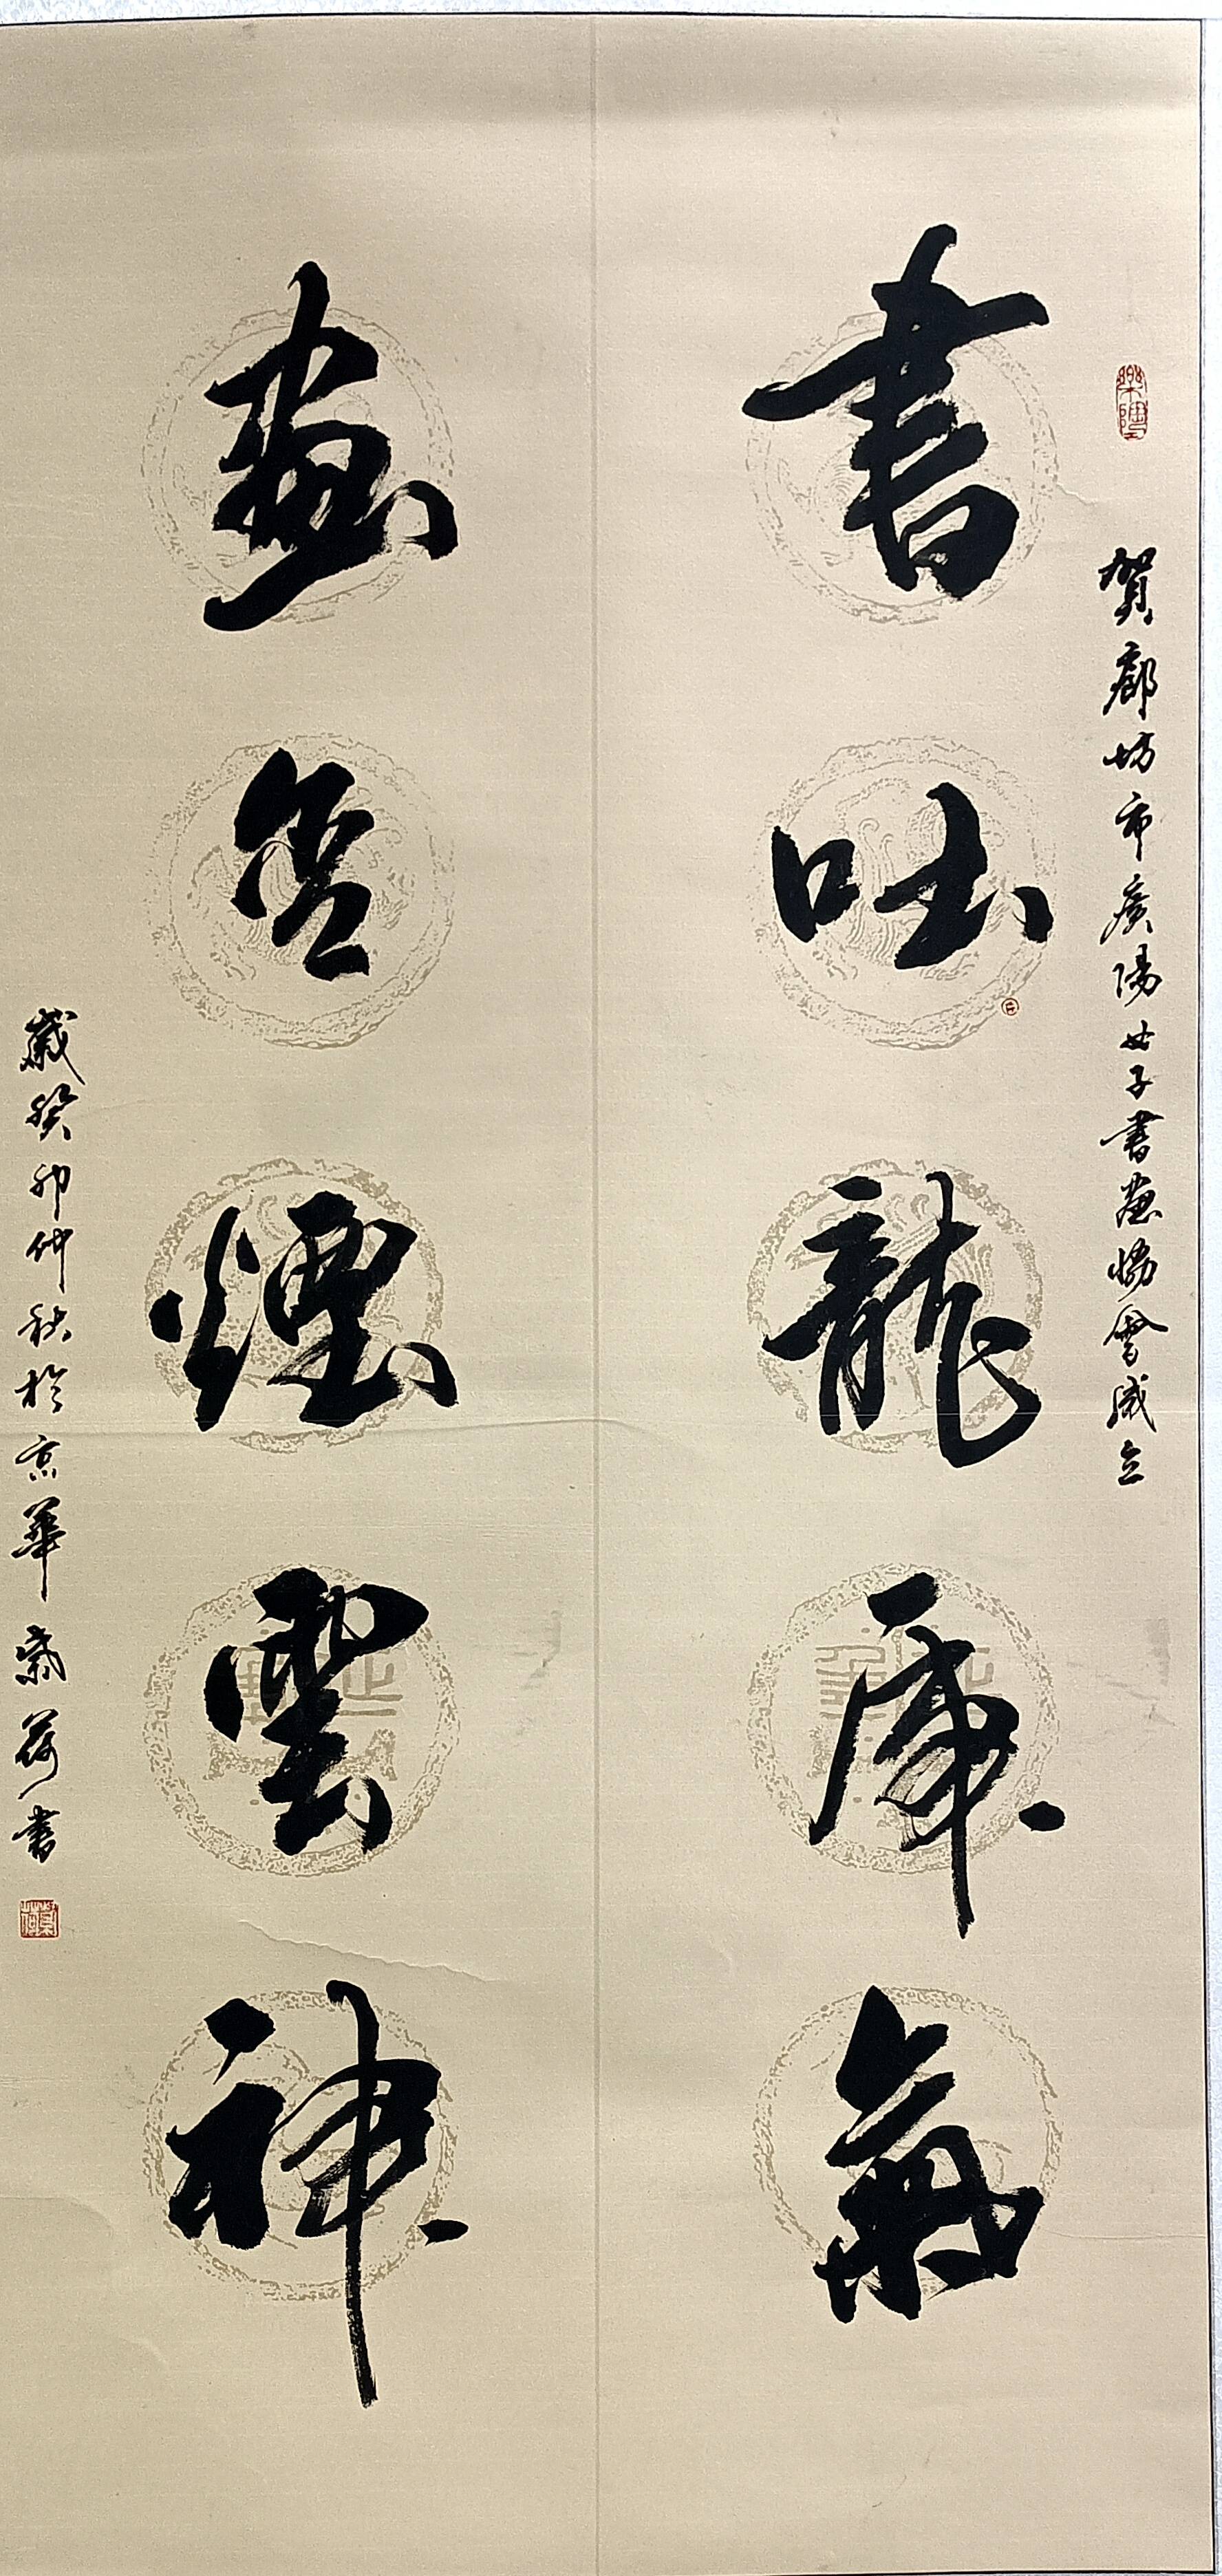 賀廊坊市廣陽女子書画協會成立
書吐龍虎氣
画含煙雲神
歲癸卯仲秋於京華紫荷書